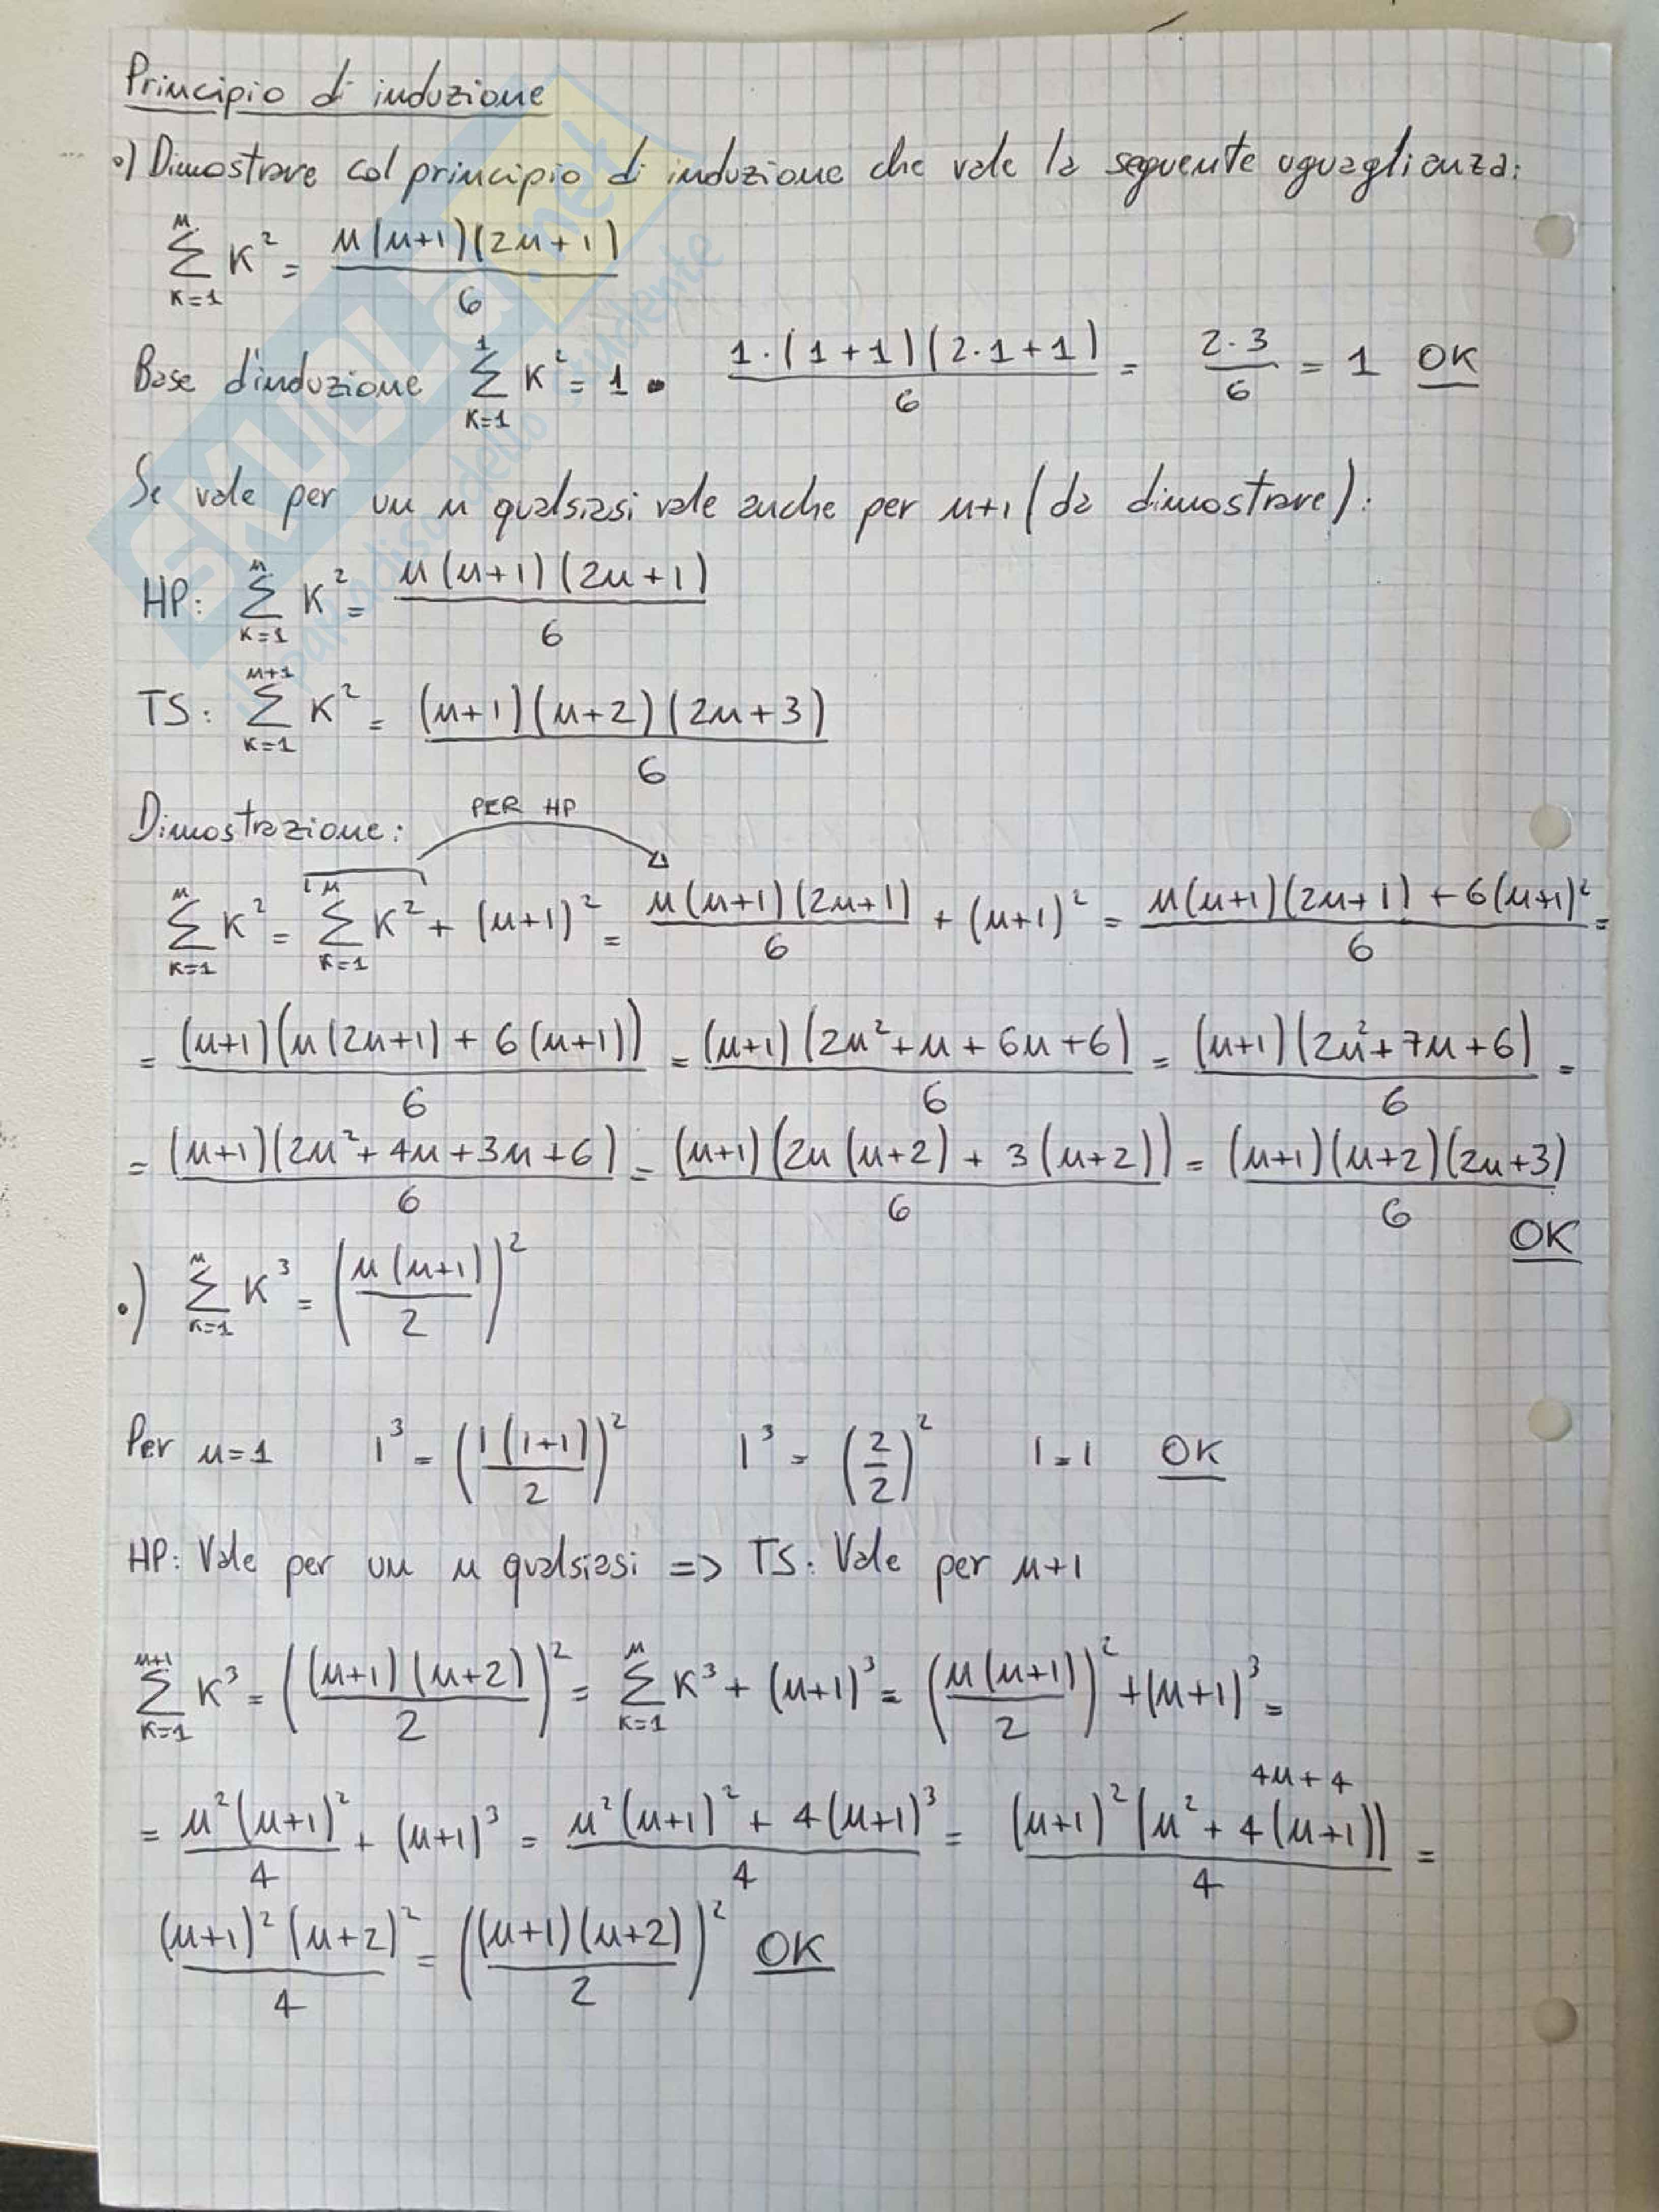 Principio di induzione
•) Dimostrare col principio di induzione che vale la seguente uguaglianza:
∑_{K=1}^{n} K² = n(n+1)(2n+1)/6
Base d'induzione ∑_{K=1}^{1} K² = 1 • 1·(1+1)(2·1+1)/6 = 2·3/6 = 1 OK
Se vale per un n qualsiasi vale anche per n+1 (da dimostrare):
HP: ∑_{K=1}^{n} K² = n(n+1)(2n+1)/6
TS: ∑_{K=1}^{n+1} K² = (n+1)(n+2)(2n+3)/6
Dimostrazione: PER HP
∑_{K=1}^{n} K² = ∑_{K=1}^{n} K² + (n+1)² = n(n+1)(2n+1)/6 + (n+1)² = (n(n+1)(2n+1) + 6(n+1)²)/6 =
= (n+1)(n(2n+1) + 6(n+1))/6 = (n+1)(2n²+n+6n+6)/6 = (n+1)(2n²+7n+6)/6 =
= (n+1)(2n²+4n+3n+6)/6 = (n+1)(2n(n+2) + 3(n+2))/6 = (n+1)(n+2)(2n+3)/6
OK
•) ∑_{K=1}^{n} K³ = (n(n+1)/2)²
Per n=1 1³ = (1(1+1)/2)² 1³ = (2/2)² 1=1 OK
HP: Vale per un n qualsiasi => TS: Vale per n+1
∑_{K=1}^{n+1} K³ = ((n+1)(n+2)/2)² = ∑_{K=1}^{n} K³ + (n+1)³ = (n(n+1)/2)² + (n+1)³ =
4n+4
= n²(n+1)²/4 + (n+1)³ = (n²(n+1)² + 4(n+1)³)/4 = (n+1)²(n² + 4(n+1))/4 =
(n+1)²(n+2)²/4 = ((n+1)(n+2)/2)² OK
SKUOLa.net
il paradiso dello studente